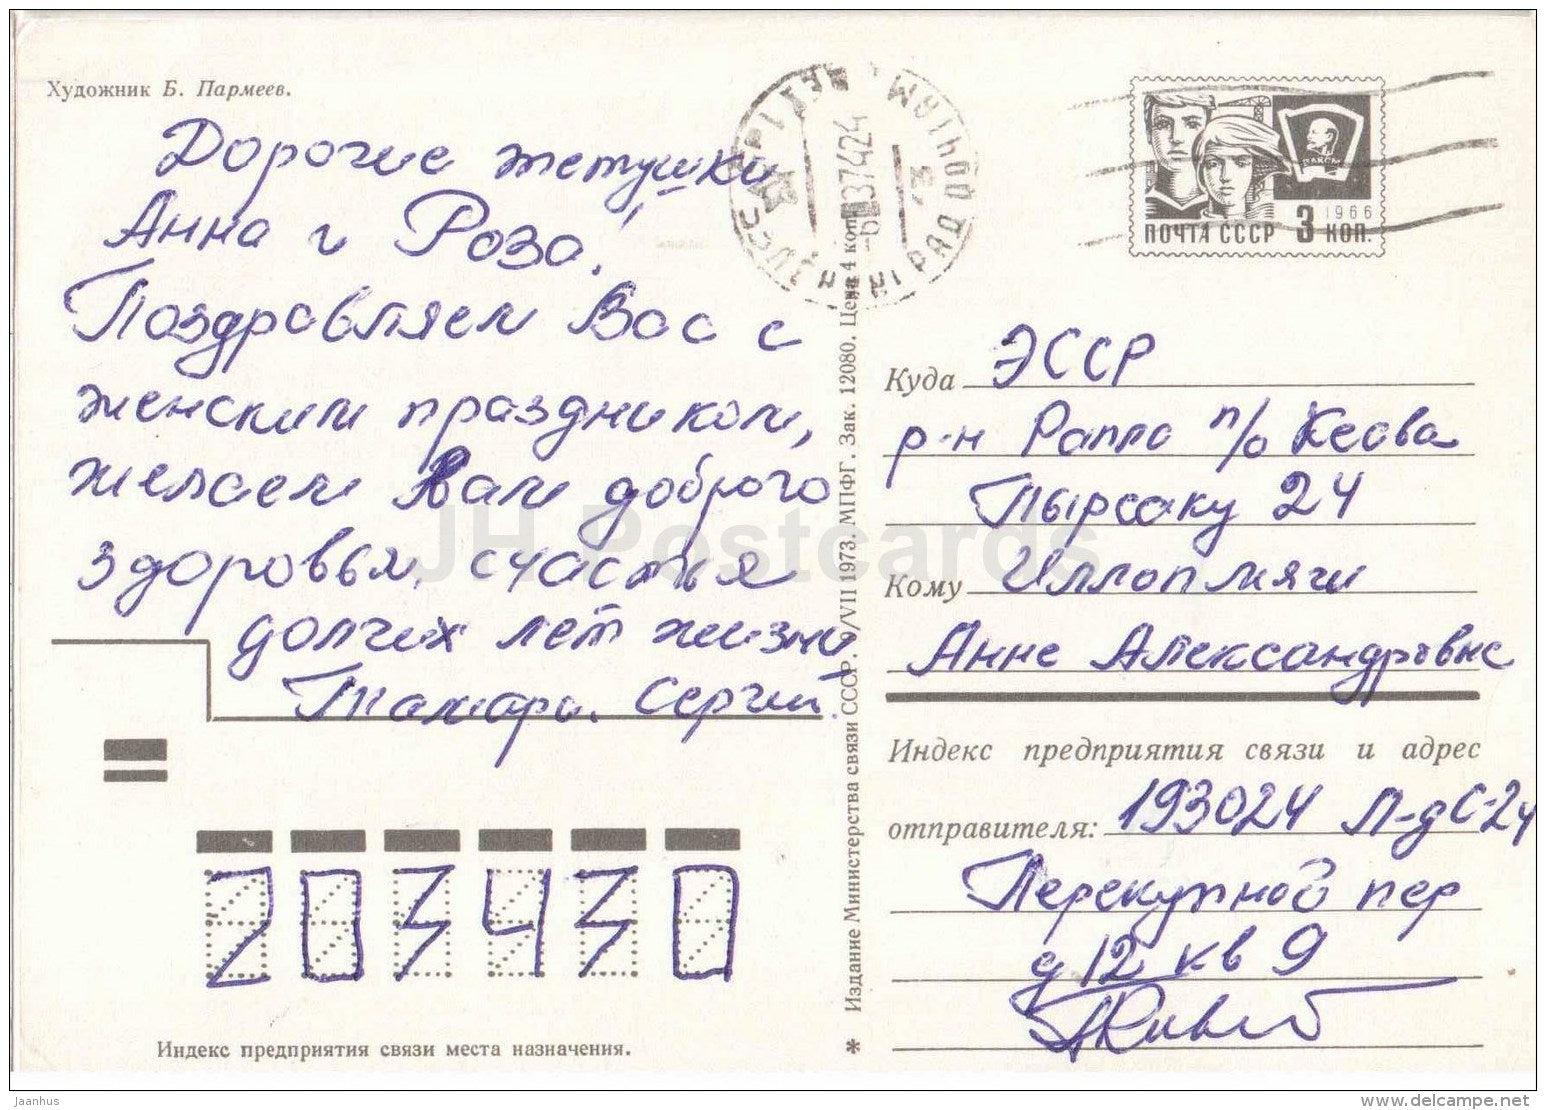 Художник Б. Пармеев.
Дорогие тетушки
Анна и Роза!
Поздравляем Вас с
женским праздником,
желаем Вам доброго
здоровья, счастья
долгих лет жизни
Тамара. Сергей.
Индекс предприятия связи места назначения.
203430
Издание Министерства связи СССР. 9/VII 1973. МПФГ. Зак. 12080. Цена 4 коп.
ПОЧТА СССР 3 КОП.
1966
ВЛКСМ
Куда ЭССР
р-н Рапла п/о Кеава
Пырсаку 24
Кому Иллопмяги
Анне Александровне
Индекс предприятия связи и адрес
отправителя: 193024 Л-д С-24
Перекупной пер
д 12 кв 9
JH Postcards
Jaanhus
delcampe.net